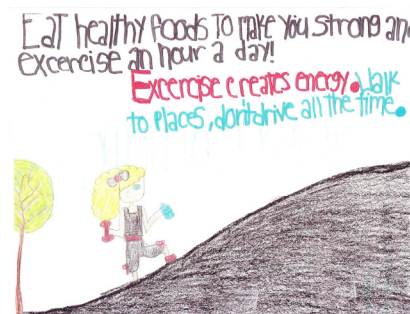 EaT healthy foods To make you strong an
excercise an hour a day!
Excercise creates energy. Walk
to places, don't drive all the time.